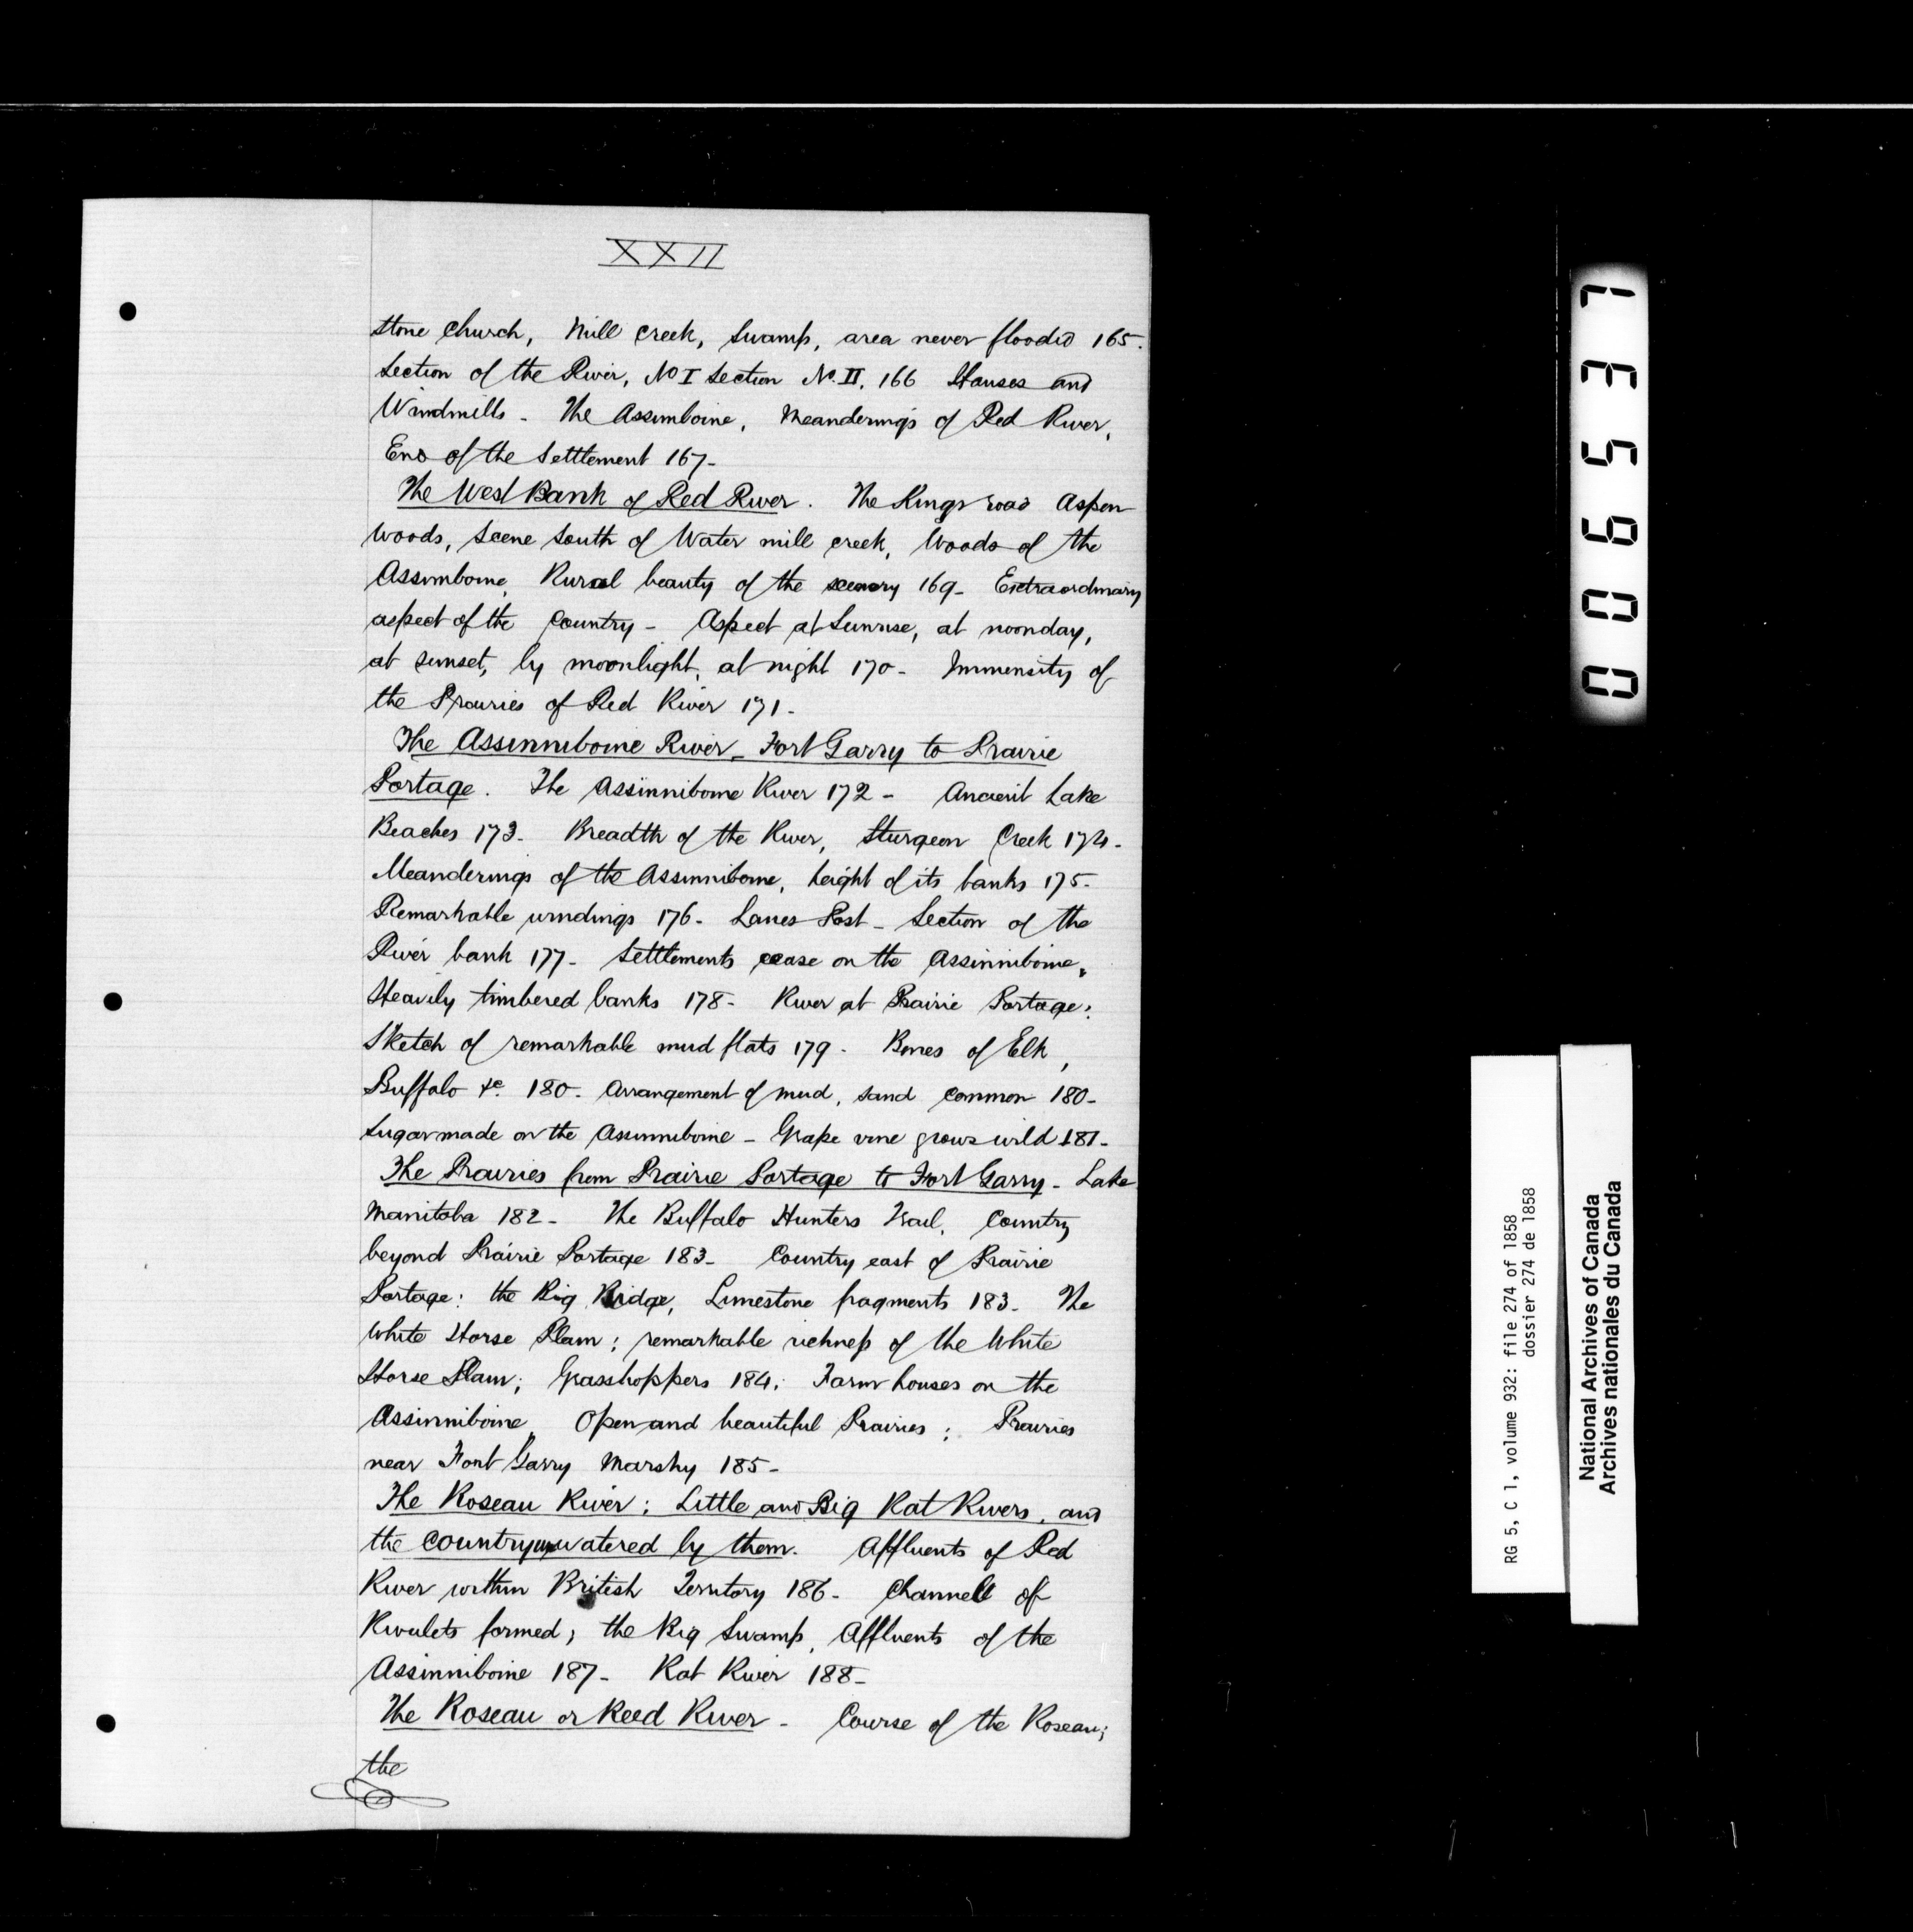 XXII
Stone Church, Mill Creek, Swamp, area never flooded 165.
Section of the River, No I Section No. II, 166 Houses and
Windmills - The Assiniboine, Meanderings of Red River,
End of the Settlement 167-
The West Bank of Red River. The Kings road Aspen
Woods, Scene South of Water mill creek, Woods of the
Assiniboine, Rural beauty of the scenery 169- Extraordinary
aspect of the Country - Aspect at Sunrise, at noonday,
at sunset, by moonlight, at night 170- Immensity of
the Prairies of Red River 171-
The Assinniboine River - Fort Garry to Prairie
Portage. The Assinniboine River 172 - Ancient Lake
Beaches 173- Breadth of the River, Sturgeon Creek 174-
Meanderings of the Assinniboine, height of its banks 175-
Remarkable windings 176- Lanes Post - Section of the
River bank 177- Settlements cease on the Assinniboine,
Heavily timbered banks 178- River at Prairie Portage;
Sketch of remarkable mud flats 179- Bones of Elk,
Buffalo &c. 180- Arrangement of mud, sand common 180-
Sugar made on the Assinniboine - Grape vine grows wild 181-
The Prairies from Prairie Portage to Fort Garry - Lake
Manitoba 182- The Buffalo Hunters Trail, Country
beyond Prairie Portage 183- Country east of Prairie
Portage: the Big Ridge, Limestone fragments 183- The
White Horse Plain; remarkable richness of the White
Horse Plain; Grasshoppers 184; Farm houses on the
Assinniboine, Open and beautiful Prairies; Prairies
near Fort Garry Marshy 185-
The Roseau River; Little and Big Rat Rivers, and
the country watered by them. Affluents of Red
River within British Territory 186- Channell of
Rivulets formed; the Big Swamp, Affluents of the
Assinniboine 187- Rat River 188-
The Roseau or Reed River - Course of the Roseau;
the
006537
RG 5, C 1, volume 932: file 274 of 1858
dossier 274 de 1858
National Archives of Canada
Archives nationales du Canada